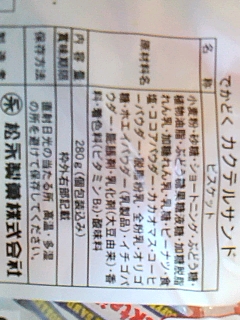 でかどく カクテルサンド
名称 ビスケット
原材料名
小麦粉・砂糖・ショートニング・ぶどう糖・
植物油脂・ぶどう糖果糖液糖・加糖脱脂
れん乳・加糖れん乳・乳糖・ピーナツ・食
塩・ココアパウダー・カカオマス・コーヒ
ーパウダー・脱脂粉乳・全粉乳・オリゴ
糖・ホエイパウダー(乳製品)・イチゴパ
ウダー・膨脹剤・乳化剤(大豆由来)・香
料・着色料(ビタミンB₂)・酸味料
内容量 280g(個包装込み)
賞味期限 枠外右部記載
保存方法 直射日光の当たる所、高温・多湿
の所を避けて保存してください。
松永製菓株式会社